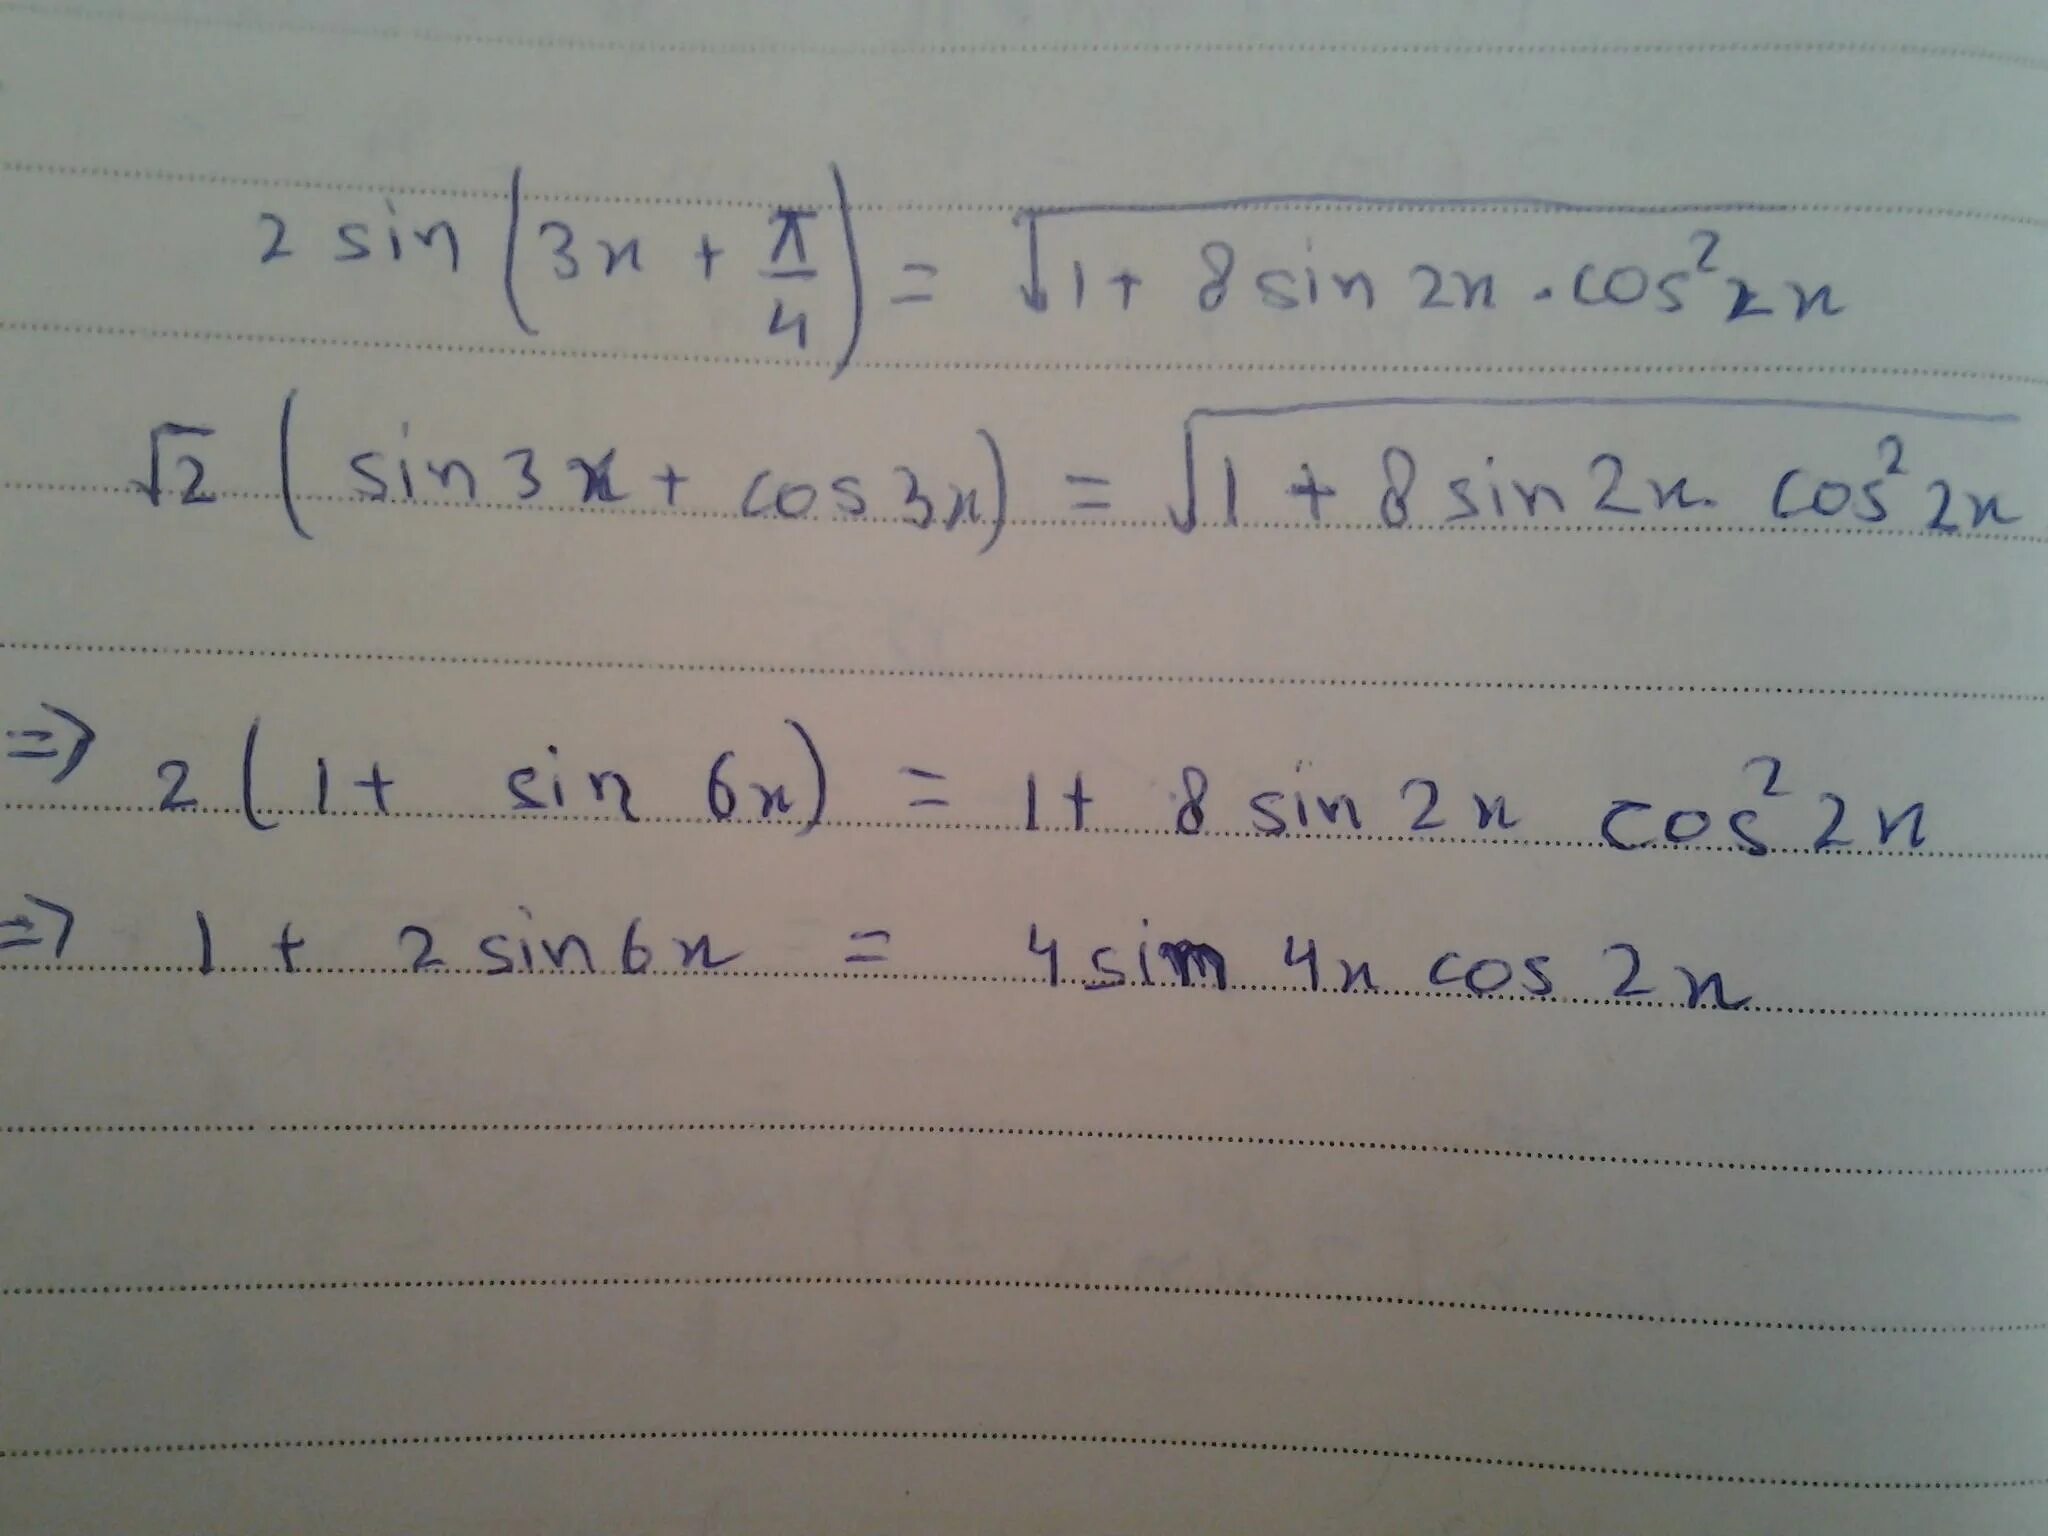 2 sin (3x + π/4) = √(1 + 8 sin 2x . cos² 2x)
√2 ( sin 3x + cos 3x) = √(1 + 8 sin 2x. cos² 2x)
=> 2 (1 + sin 6x) = 1 + 8 sin 2x cos² 2x
=> 1 + 2 sin 6x = 4 sin 4x cos 2x